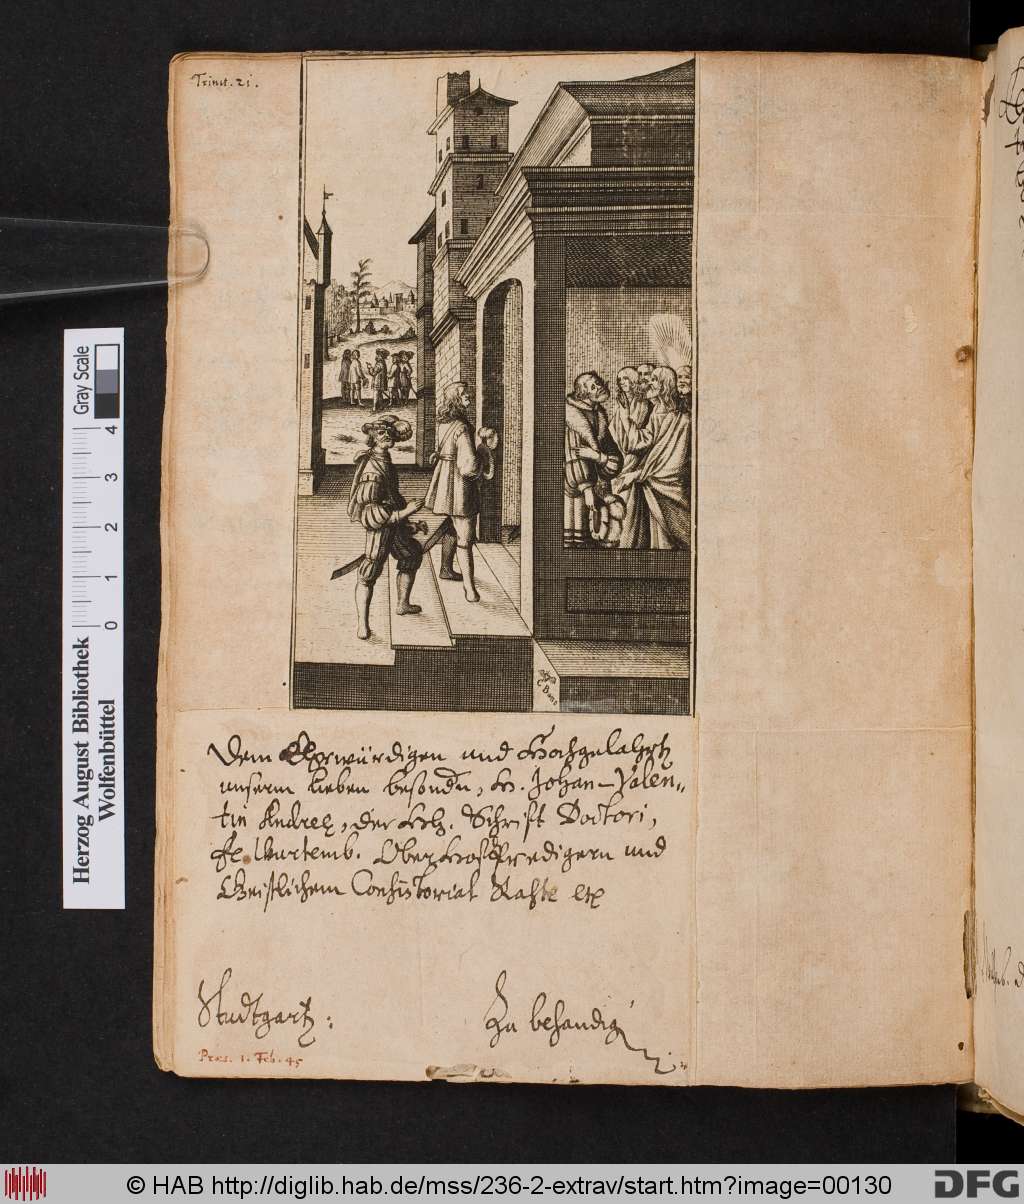 Trinit. 21.
C Buno
Dem Ehrwürdigen und Hochgelahrten
unserm lieben besondn, H. Johan Valen„
tin Andreæ, der Hlg. Schrifft Doctori,
Fe. Wurtemb. Ober Hoff Predigern und
Geistlichem Consistorial Rahte etc
Studtgartt:
Zu behandig
Præs. 1. Feb. 45
Herzog August Bibliothek
Wolfenbüttel
Gray Scale
0 1 2 3 4
© HAB http://diglib.hab.de/mss/236-2-extrav/start.htm?image=00130
DFG